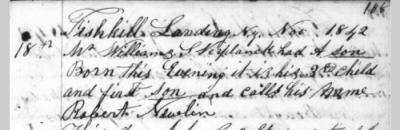 108
Fishkill Landing N.y. Nov 1842
18th Mr William S Verplanck had A son
Born this Evening it is his 3d child
and first Son and calls his name
Robert Newlin